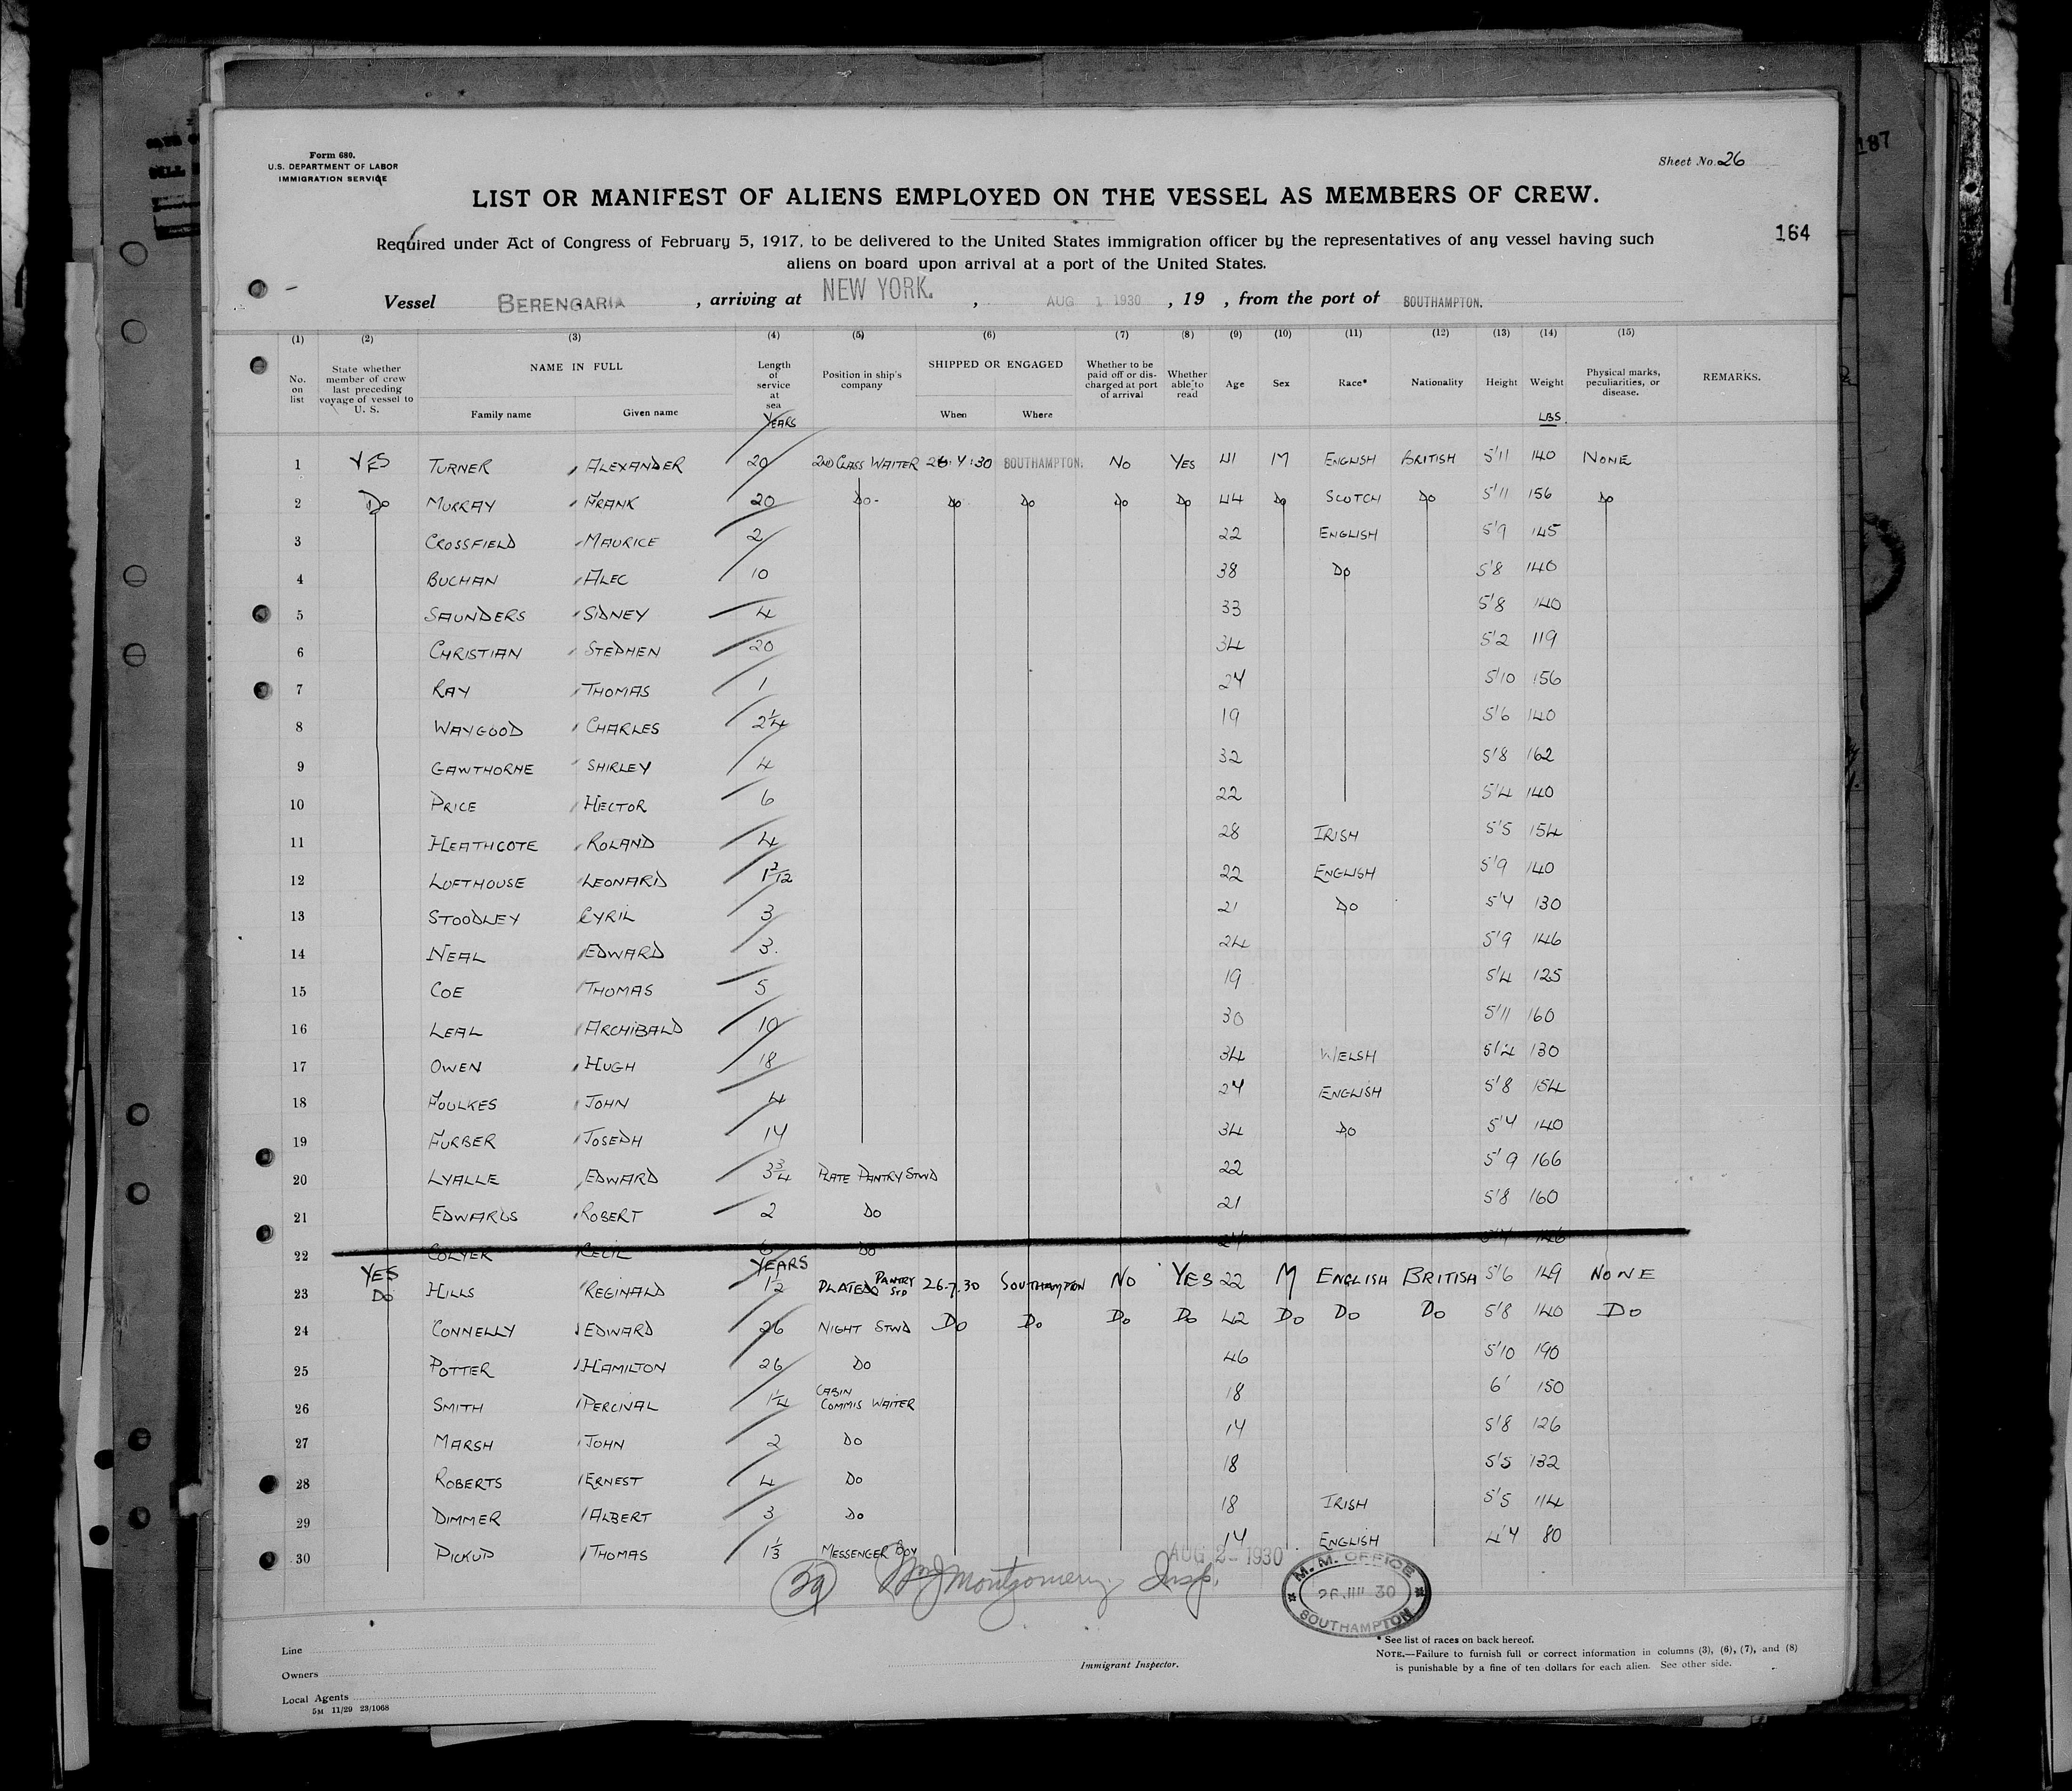 187
Form 680.
U.S. DEPARTMENT OF LABOR
IMMIGRATION SERVICE
Sheet No. 26
LIST OR MANIFEST OF ALIENS EMPLOYED ON THE VESSEL AS MEMBERS OF CREW.
164
Required under Act of Congress of February 5, 1917, to be delivered to the United States immigration officer by the representatives of any vessel having such
aliens on board upon arrival at a port of the United States.
Vessel BERENGARIA, arriving at NEW YORK., AUG 1 1930, 19 , from the port of SOUTHAMPTON.
(1) (2) (3) (4) (5) (6) (7) (8) (9) (10) (11) (12) (13) (14) (15)
No. on list State whether member of crew last preceding voyage of vessel to U. S. NAME IN FULL Length of service at sea Position in ship's company SHIPPED OR ENGAGED Whether to be paid off or discharged at port of arrival Whether able to read Age Sex Race* Nationality Height Weight Physical marks, peculiarities, or disease. REMARKS.
Family name Given name When Where
YEARS LBS.
1 YES TURNER ALEXANDER 20 2ND CLASS WAITER 26.7.30 SOUTHAMPTON. NO YES 41 M ENGLISH BRITISH 5'11 140 NONE
2 DO MURRAY FRANK 20 DO- DO DO DO DO 44 DO SCOTCH DO 5'11 156 DO
3 CROSSFIELD MAURICE 2 22 ENGLISH 5'9 145
4 BUCHAN ALEC 10 38 DO 5'8 140
5 SAUNDERS SIDNEY 4 33 5'8 140
6 CHRISTIAN STEPHEN 20 34 5'2 119
7 RAY THOMAS 1 27 5'10 156
8 WAYGOOD CHARLES 2¼ 19 5'6 140
9 GAWTHORNE SHIRLEY 4 32 5'8 162
10 PRICE HECTOR 6 22 5'4 140
11 HEATHCOTE ROLAND 4 28 IRISH 5'5 154
12 LOFTHOUSE LEONARD 1 2/12 22 ENGLISH 5'9 140
13 STOODLEY CYRIL 3 21 DO 5'7 130
14 NEAL EDWARD 3. 24 5'9 146
15 COE THOMAS 5 19 5'4 125
16 LEAL ARCHIBALD 10 30 5'11 160
17 OWEN HUGH 18 34 WELSH 5'4 130
18 FOULKES JOHN 4 27 ENGLISH 5'8 154
19 FURBER JOSEPH 17 34 DO 5'7 140
20 LYALLE EDWARD 3¾ PLATE PANTRY STWD 22 5'9 166
21 EDWARDS ROBERT 2 DO 21 5'8 160
22 COLYER CECIL 6 DO
YEARS
23 YES HILLS REGINALD 1½ PLATE PANTRY STD 26.7.30 SOUTHAMPTON NO YES 22 M ENGLISH BRITISH 5'6 149 NONE
24 DO CONNELLY EDWARD 26 NIGHT STWD DO DO DO DO 42 DO DO DO 5'8 140 DO
25 POTTER HAMILTON 26 DO 46 5'10 190
26 SMITH PERCIVAL 1¼ CABIN COMMIS WAITER 18 6' 150
27 MARSH JOHN 2 DO 17 5'8 126
28 ROBERTS ERNEST 4 DO 18 5'5 132
29 DIMMER ALBERT 3 DO 18 IRISH 5'5 114
30 PICKUP THOMAS 1⅓ MESSENGER BOY 17 ENGLISH 4'7 80
AUG 2 - 1930
Montgomery Insp.
M. M. OFFICE
30
SOUTHAMPTON
Line
Owners
Local Agents
5M 11/29 23/1068
Immigrant Inspector.
* See list of races on back hereof.
NOTE.—Failure to furnish full or correct information in columns (3), (6), (7), and (8)
is punishable by a fine of ten dollars for each alien. See other side.